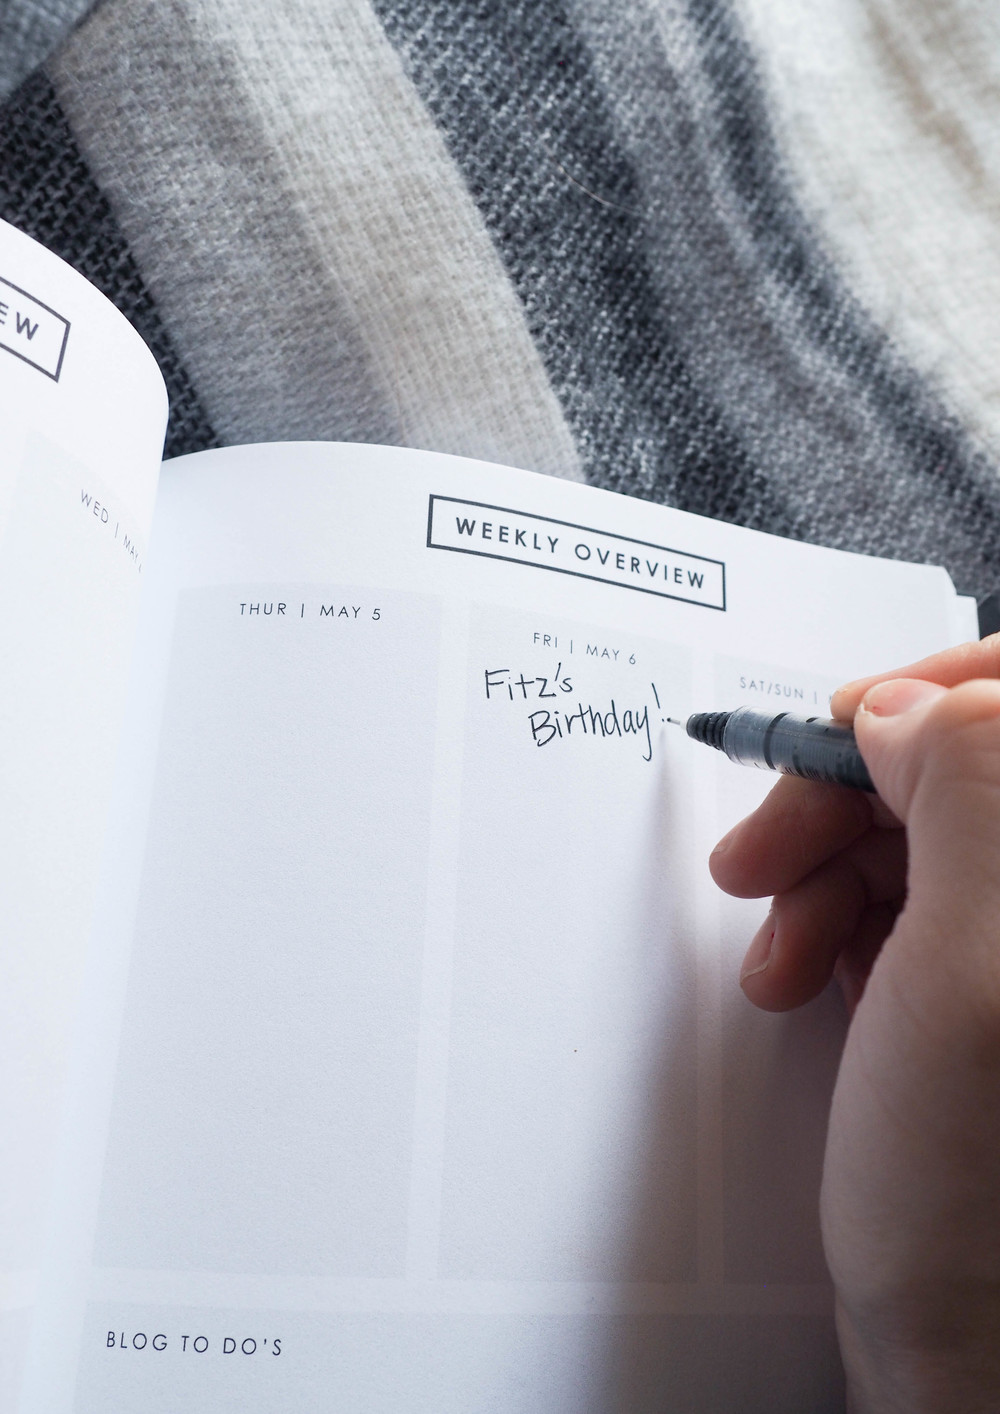 EW
WED | MAY 4
WEEKLY OVERVIEW
THUR | MAY 5
FRI | MAY 6
Fitz's
Birthday!
SAT/SUN |
BLOG TO DO'S